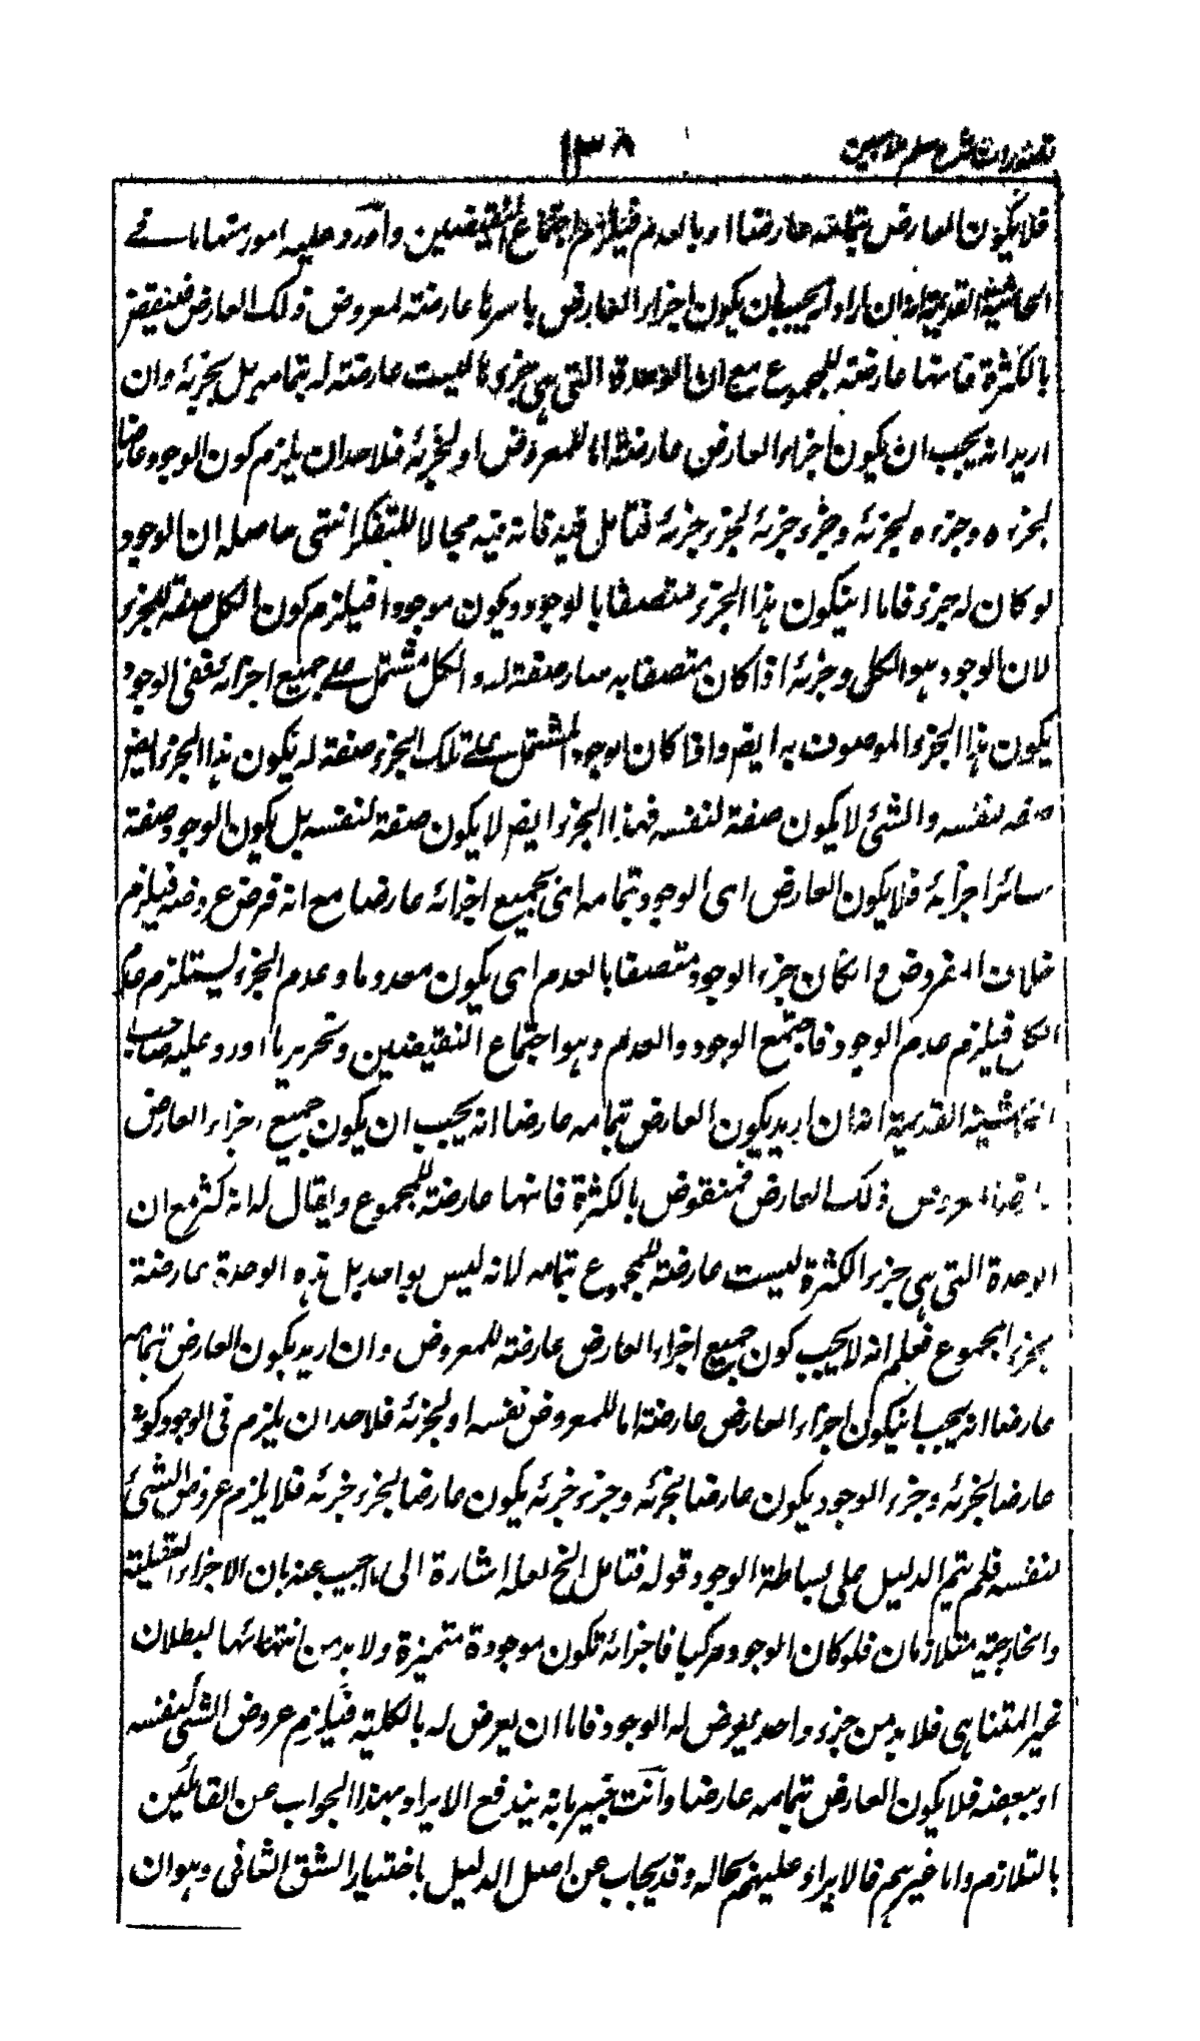 ١٣٨
فلا يكون العارض بتمامه عارضا او بالعدم فيلزم اجتماع النقيضين واورد عليه امور منها ما فى
الحاشية القديمة انه ان اراد انه يجب ان يكون اجزاء العارض باسرها عارضته لمعروض ذلك العارض فينتقض
بالكثرة فانها عارضته للمجموع مع ان الوحدة التى هى جزء ها ليست عارضته له بتمامه بل بجزئه وان
اريد انه يجب ان يكون اجزاء العارض عارضته اما للمعروض او لجزئه فلاحد ان يلزم كون الوجود عارضا
لجزءه وجزءه لجزئه وجزء جزئه لجزء جزئه فتامل فيه فانه فيه مجالا للتفكر انتهى حاصله ان الوجود
لو كان له جزء فاما ان يكون هذا الجزء متصفا بالوجود ويكون موجودا فيلزم كون الكل صفة للجزء
لان الوجود هو الكل وجزئه اذا كان متصفا به صار صفة له والكل مشتمل على جميع اجزائه ففى الوجود
يكون هذا الجزء الموصوف به ايضا واذا كان الوجود المشتمل على تلك الجزء صفة له يكون هذا الجزء ايضا
صفه لنفسه والشئ لا يكون صفة لنفسه فهذا الجزء ايضا لا يكون صفة لنفسه بل يكون الوجود صفة
سائر اجزائه فلا يكون العارض اى الوجود بتمامه اى بجميع اجزائه عارضا مع انه فرض عروضه فيلزم
خلاف المفروض وان كان جزء الوجود متصفا بالعدم اى يكون معدوما وعدم الجزء ليستلزم عدم
الكل فيلزم عدم الوجود فاجتمع الوجود والعدم وهو اجتماع النقيضين وتحرير ما اورد عليه صاحب
الحاشية القديمة انه ان اريد بكون العارض بتمامه عارضا انه يجب ان يكون جميع اجزاء العارض
عارضة لمعروض ذلك العارض فمنقوض بالكثرة فانها عارضته للمجموع ويقال له انه كثر مع ان
الوحدة التى هى جزء الكثرة ليست عارضته للمجموع بتمامه لانه ليس بواحد بل هذه الوحدة عارضة
بجزء المجموع فعلم انه لا يجب كون جميع اجزاء العارض عارضته للمعروض وان اريد بكون العارض بتمامه
عارضا انه يجب ان يكون اجزاء العارض عارضته اما للمعروض نفسه او لجزئه فلاحد ان يلزم فى الوجود كونه
عارضا لجزئه وجزء الوجود يكون عارضا لجزئه وجزء جزئه يكون عارضا لجزء جزئه فلا يلزم عروض الشئ
لنفسه فلم يتم الدليل على بساطة الوجود قوله فتامل الخ لعله اشارة الى ما اجيب عنه بان الاجزاء العقلية
والخارجية متلازمان فلو كان الوجود مركبا فاجزائه تكون موجودة متميزة ولا بد من انتهائها لبطلان
غير المتناهى فلا بد من جزء واحد يعرض له الوجود فاما ان يعرض له بالكلية فيلزم عروض الشئ لنفسه
او ببعضه فلا يكون العارض بتمامه عارضا وانت خبير بانه يندفع الايراد بهذا الجواب عن القائلين
بالتلازم واما غيرهم فالايراد عليهم بحاله وقد يجاب عن اصل الدليل باختيار الشق الثانى وهو ان